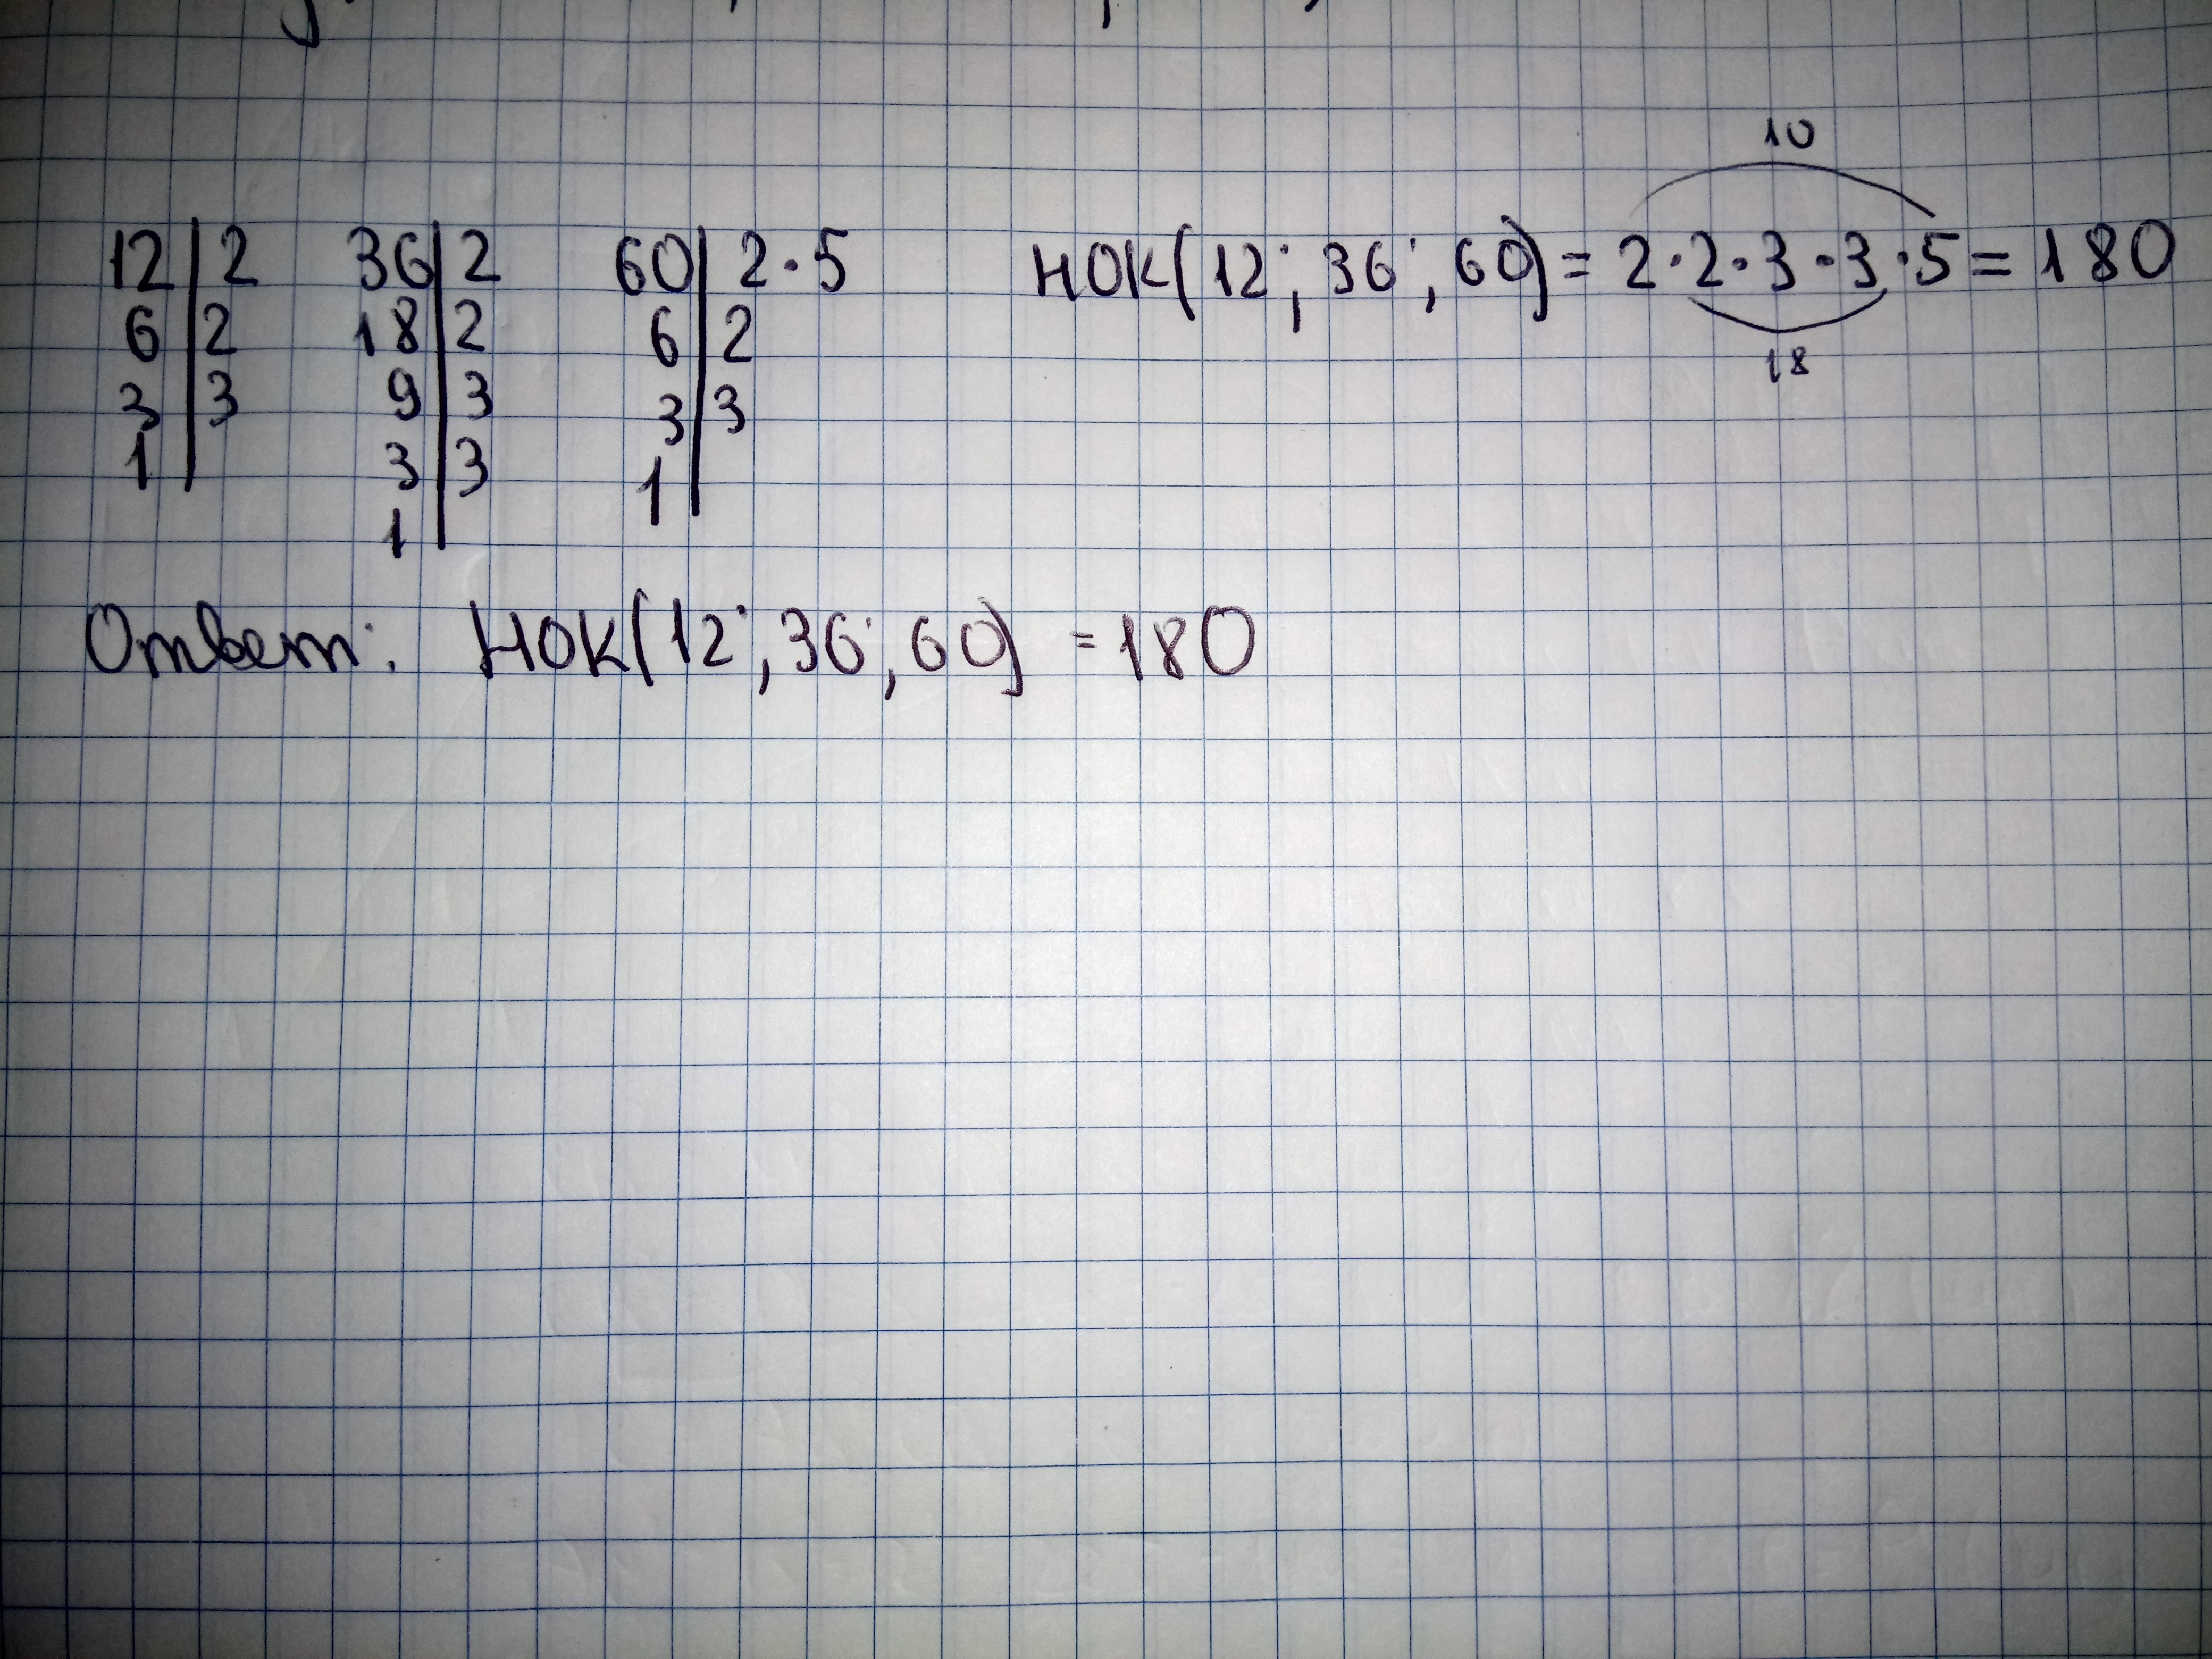 10
12 | 2 36 | 2 60 | 2·5 НОК(12; 36; 60) = 2·2·3·3·5 = 180
6 | 2 18 | 2 6 | 2
18
3 | 3 9 | 3 3 | 3
1 | 3 | 3 1 |
1 |
Ответ: НОК(12; 36; 60) = 180